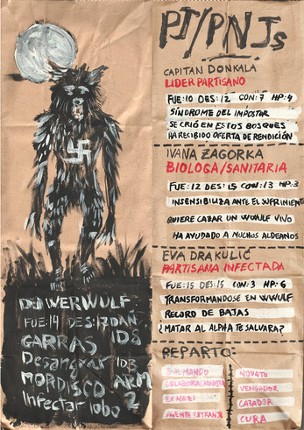 PJ/PNJs
CAPITAN DONKALA
LIDER PARTISANO
FUE:10 DES:12 CON:7 HP:4
SÍNDROME DEL IMPOSTOR
SE CRIÓ EN ESTOS BOSQUES
HA RECIBIDO OFERTA DE RENDICIÓN
IVANA ZAGORKA
BIOLOGA/SANITARIA
FUE:12 DES:15 CON:13 HP:3
INSENSIBLIZA ANTE EL SUFRIMIENTO
QUIERE CAZAR UN WULF VIVO
HA AYUDADO A MUCHOS ALDEANOS
EVA DRAKULIC
PARTISANA INFECTADA
FUE:15 DES:15 CON:3 HP:6
TRANSFORMANDOSE EN WWULF
RECORD DE BAJAS
¿MATAR AL ALPHA TE SALVARA?
REPARTO:
AL MANDO
COLABORACIONISTA
EX NAZI
NOVATO
VENGADOR
CAZADOR
CURA
DER WERWULF
FUE:14 DES:17
GARRAS 1D8
Desangrar
MORDISCO
Infectar lobo
ARM 2